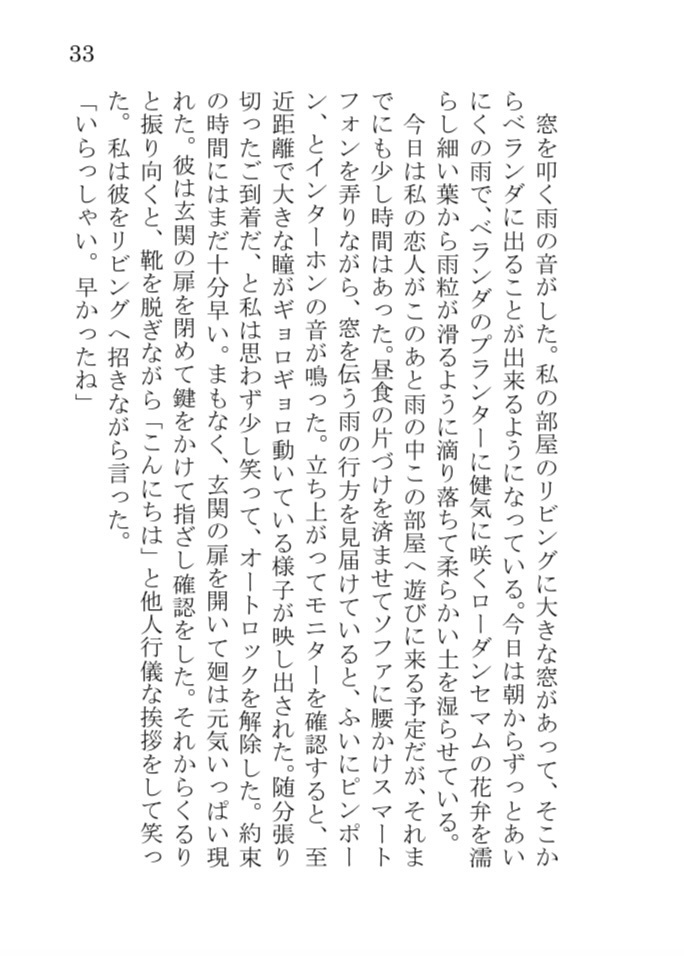 33
　窓を叩く雨の音がした。私の部屋のリビングに大きな窓があって、そこか
らベランダに出ることが出来るようになっている。今日は朝からずっとあい
にくの雨で、ベランダのプランターに健気に咲くローダンセマムの花弁を濡
らし細い葉から雨粒が滑るように滴り落ちて柔らかい土を湿らせている。
　今日は私の恋人がこのあと雨の中この部屋へ遊びに来る予定だが、それま
でにも少し時間はあった。昼食の片づけを済ませてソファに腰かけスマート
フォンを弄りながら、窓を伝う雨の行方を見届けていると、ふいにピンポー
ン、とインターホンの音が鳴った。立ち上がってモニターを確認すると、至
近距離で大きな瞳がギョロギョロ動いている様子が映し出された。随分張り
切ったご到着だ、と私は思わず少し笑って、オートロックを解除した。約束
の時間にはまだ十分早い。まもなく、玄関の扉を開いて廻は元気いっぱい現
れた。彼は玄関の扉を閉めて鍵をかけて指ざし確認をした。それからくるり
と振り向くと、靴を脱ぎながら「こんにちは」と他人行儀な挨拶をして笑っ
た。私は彼をリビングへ招きながら言った。
「いらっしゃい。早かったね」